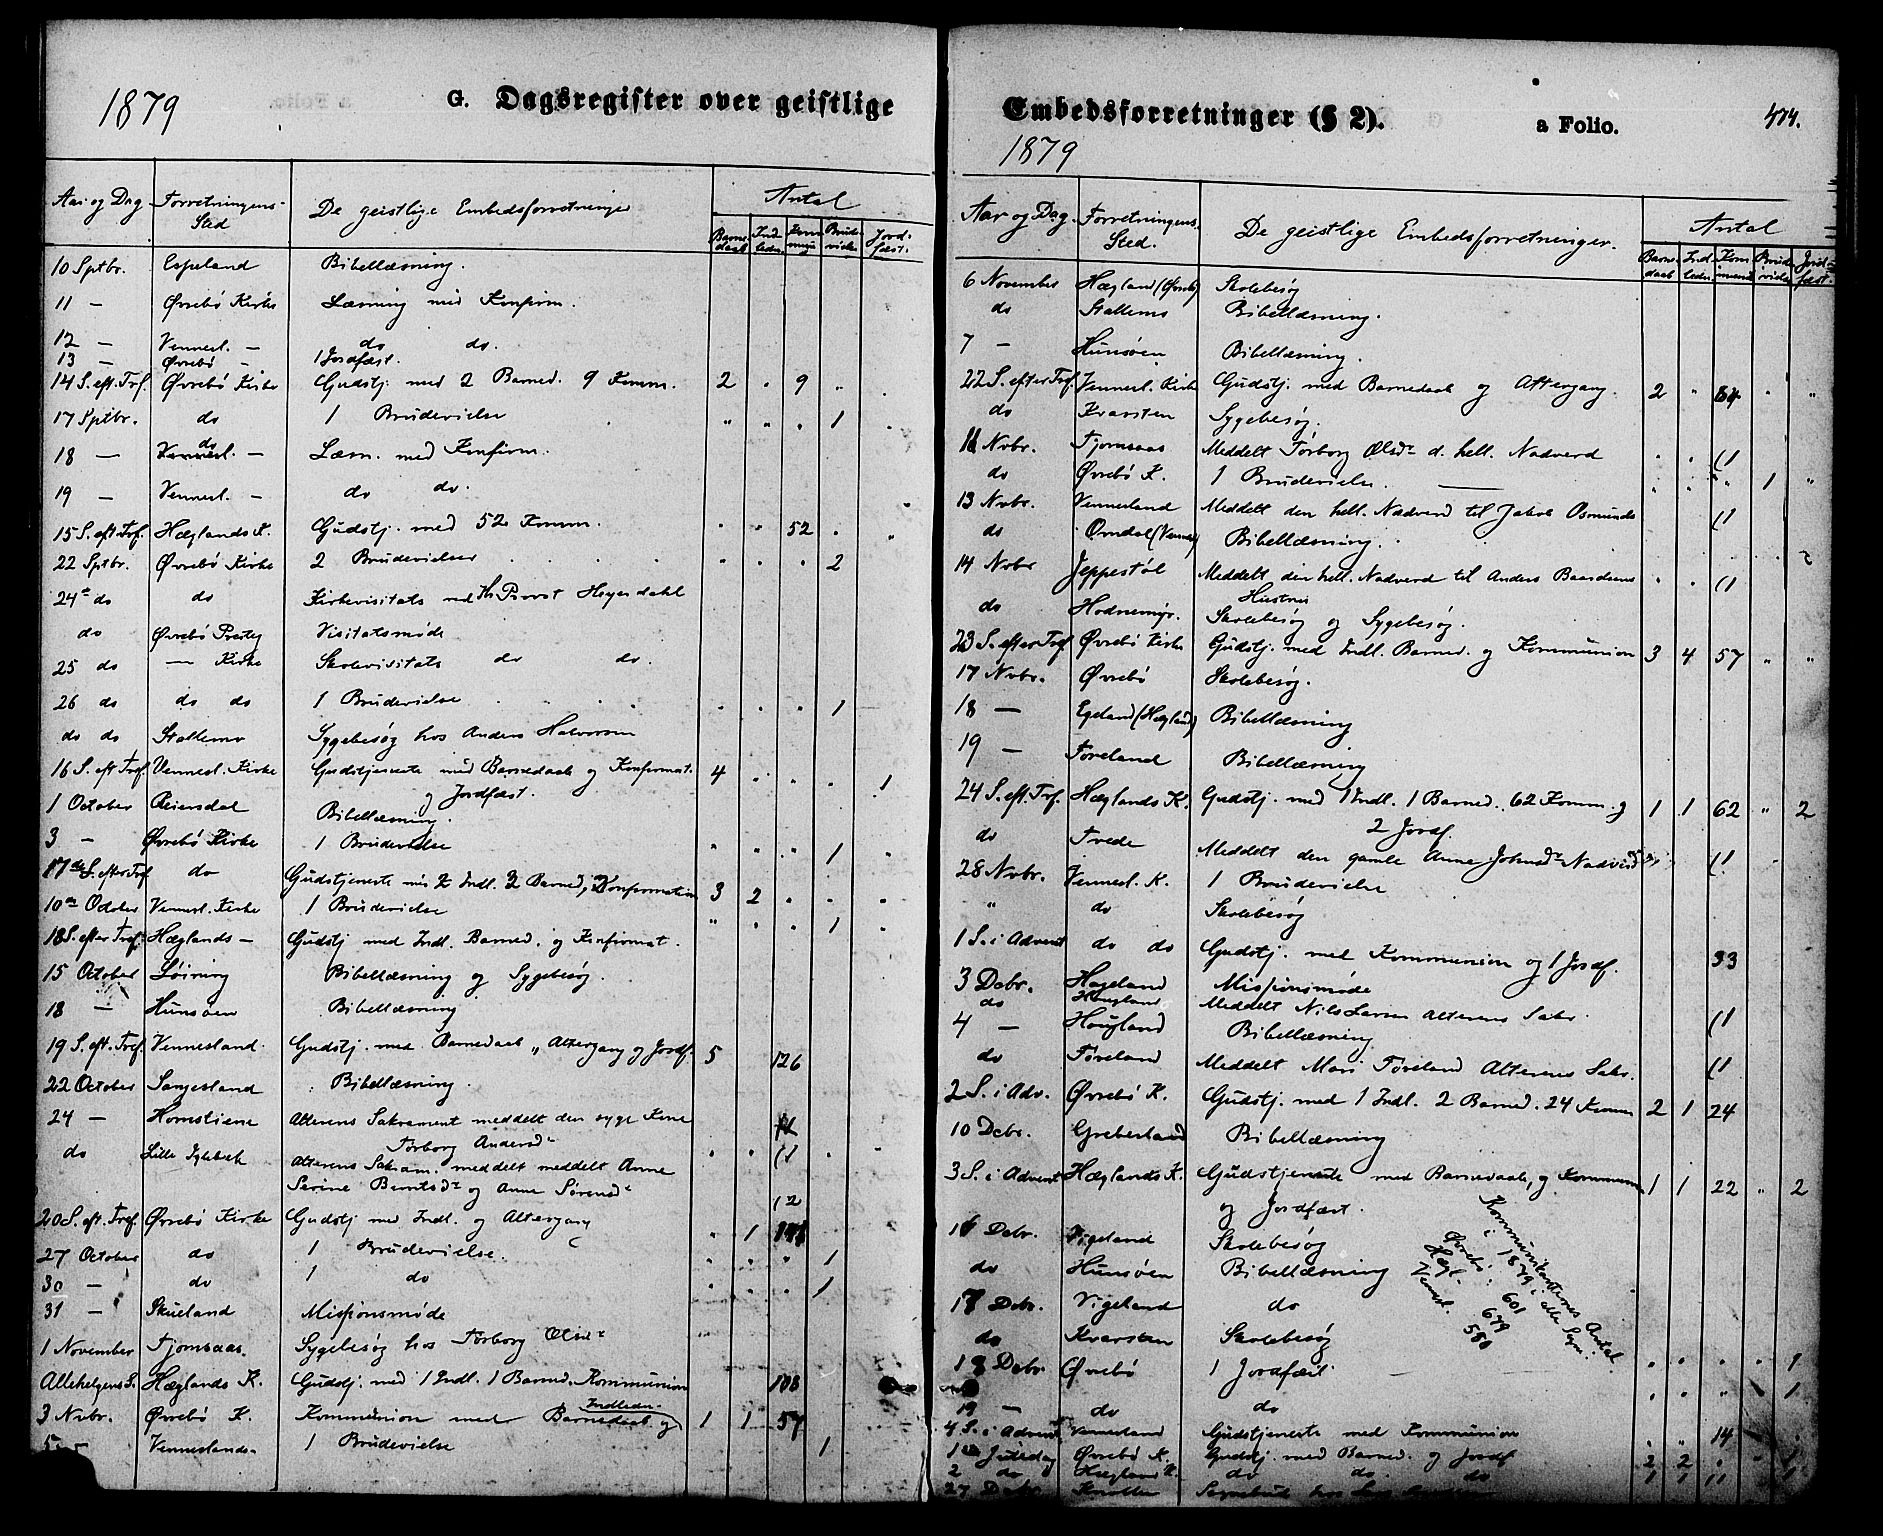 1879
G. Dagsregister over geistlige
Aar og Dag Forretningens- Sted De geistlige Embedsforretninger Antal
Barne daab Ind leden Kom muni Brude vielse Jord- fæst.
10 Sptbr. Espeland Bibellæsning.
11 — Øvrebø Kirke Læsning med Konfirm.
12 — Vennesl. — do do.
13 — Øvrebø — 1 Jordfæst.
14 S. eft. Trf. Øvrebø Kirke Gudstj. med 2 Barned. 9 Komm. 2 " 9 "
17 Sptbr. do 1 Brudevielse " " " 1 "
18 — do — Læsn. med Konfirm.
19 — Vennesl. — do do.
15 S. eft. Trf. Hæglands K. Gudstj. med 52 Komm. " " 52 " "
22 Sptbr. Øvrebø Kirke 2 Brudevielser " " " 2
24 do do Kirkevisitats ved Hr Provst Heyerdahl
do Øvrebø Prstg Visitatsmøde
25 do — Kirke Skolevisitats do do.
26 do do do 1 Brudevielse " " " 1
do do Stallemo Sygebesøg hos Anders Halvorsen
16 S. eft Tref. Vennesl. Kirke Gudstjeneste med Barnedaab og Konfirmat. 4 " " " 1
og Jordfæst.
1 October Reiersdal Bibellæsning.
3 — Øvrebø Kirke 1 Brudevielse " " " 1 "
17de S. efter Trf do Gudstjeneste Indl. Barned, Konfirmation 3 2 " " "
10 October Vennesl. Kirke 1 Brudevielse " " " 1
18 S. efter Tref. Hæglands — Gudstj med Indl. Barned. og Konfirmat.
15 October Løining Bibellæsning og Sygebesøg.
18 — Hunsøen Bibellæsning
19 S. eft. Tref. Vennesland. Gudstj. med Barnedaab „ Altergang og Jordf. 5 126
22 October Sangesland Bibellæsning.
24 — Homstiene Alterens Sakrament meddelt den syge Kone
Torborg Andersdr
do Lille Iglebæk Alterens Sakram. meddelt meddelt Anne " " (1 " "
Serine Berntsdr og Anne Sørensdr (2
20 S. eft. Tref. Øvrebø Kirke Gudstj med Indl. og Altergang " 1
27 October do 1 Brudevielse. " " " 1
30 — do 1 do " " " 1
31 — Skueland Missionsmøde
1 November Fjomsaas. Sygebesøg hos Torborg Olsdr
Allehelgens S. Hæglands K. Gudstj. med 1 Indl. 1 Barned. Kommunion 108
3 Nvbr. Øvrebø K. Kommunion med Barnedaab og Indleden 1 1 57
5 — Venneslands- 1 Brudevielse 1
Embedsforretninger (§ 2).
a Folio. 474.
1879
Aar og Dag. Forretningens Sted. De geistlige Embedsforretninger. Antal
Barne- daab Ind- leden Kom munik Brude vielse Jord- fæst.
6 November Hægland (Øvrebø) Skolebesøg
do Stallemo Bibellæsning.
7 — Hunsøen Bibellæsning.
22 S. efter Trf. Vennesl. Kirke Gudstj. med Barnedaab og Altergang. 2 " 64 " "
do Kvarsten Sygebesøg.
11 Nvbr. Fjomsaas Meddelt Torborg Olsdr d. hell. Nadverd " " (1
do Øvrebø K. 1 Brudevielse. " " " 1 "
13 Nvbr. Vennesland Meddelt den hell. Nadverd til Jakob Osmunds (1
do Omdal (Vennes) Bibellæsning.
14 Nvbr Jeppestøl Meddelt den hell. Nadverd til Anders Baardsens " " (1
Hustru
do Hodnemyr. Skolebesøg og Sygebesøg.
23 S. efter Tref. Øvrebø Kirke Gudstj. med Indl. Barned. og Kommunion 3 4 57 " "
17 Nvbr. Øvrebø Skolebesøg.
18 — Egeland (Hægland) Bibellæsning
19 — Føreland Bibellæsning
24 S. eft. Trf. Hæglands K. Gudstj. med 1 Indl. 1 Barned. 62 Komm. og 1 1 62 " 2
2 Jordf.
do Tvede Meddelt den gamle Anne Johnsdr Nadverd (1
28 Nvbr. Vennesl. K. 1 Brudevielse
" do Skolebesøg
1 S. i Advent do do Gudstj. med Kommunion og 1 Jordf. 33
3 Dcbr. Hageland Missionsmøde
do Hougland Meddelt Nils Larsen Alterens Sakr. (1
4 — Hougland Bibellæsning
do Føreland Meddelt Mari Føreland Alterens Sakr. (1
2 S. i Adv. Øvrebø K. Gudstj. med 1 Indl. 2 Barned. 24 Komm 2 1 24
10 Dcbr. Greberland Bibellæsning
3 S. i Advent Hæglands K. Gudstjeneste med Barnedaab, og Kommun 1 1 22 " 2
og Jordfæst.
16 Dcbr. Vigeland Skolebesøg
do Hunsøen Bibellæsning
17 Dcbr. Vigeland do
do Kvarsten Skolebesøg
18 Dcbr. Øvrebø 1 Jordfæst " " " " 1
19 — do do " " " 1
4 S. i Advent Vennesland Gudstjeneste med Kommunion " " 14 "
1ste Juledag Øvrebø K. Gudstj. med Barned. og Jordf 2 2 " " 1
2 do Hægland K. do do do 1 1 11 1
27 Dcbr
Kommunikanternes Antal
i 1879 i alle Sogn:
Øvrebø: 601
Hægl. 679
Vennesl. 580